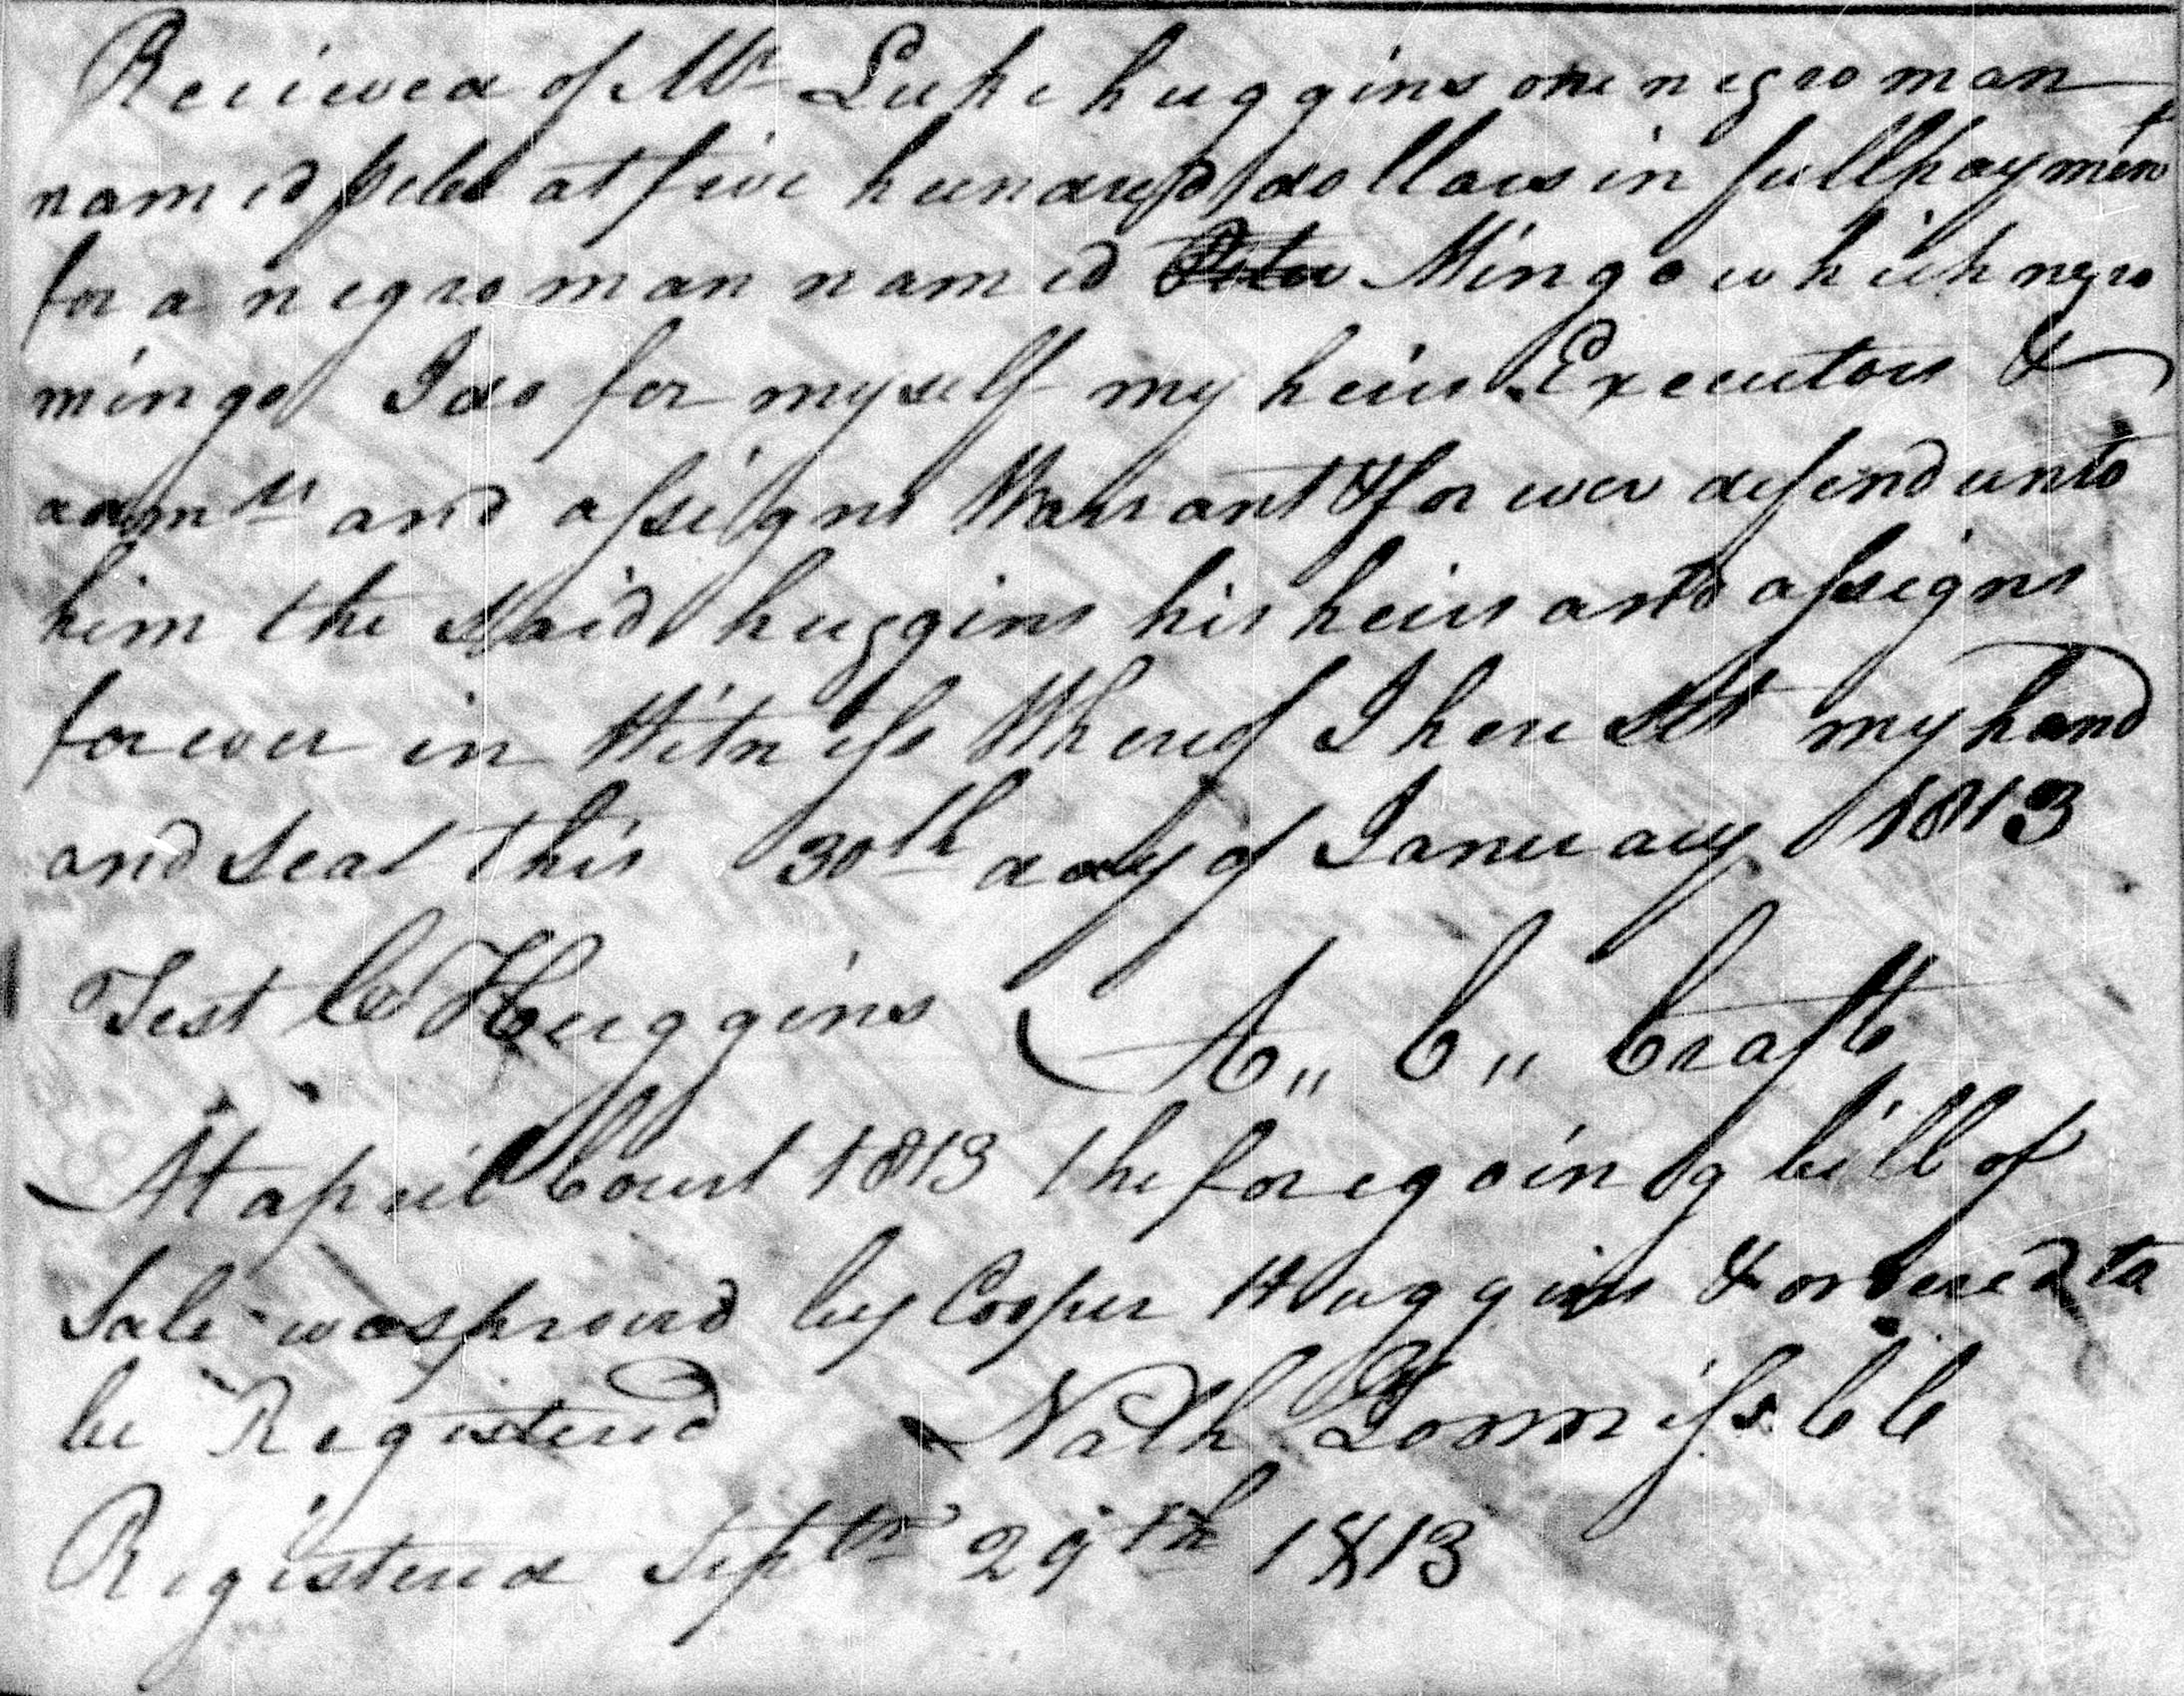 Received of Mr Luke huggins one negro man
named at five hundred dollars in full payment
for a negro man named Mingo which negro
mingo I do for myself my heirs Executors &
admrs and assigns Warrant & for ever defend unto
him the said huggins his heirs and assigns
forever in Witness Whereof I here set my hand
and seal this 30th day of January 1813
Test Cr Huggins A,, C,, Craft
At april Court 1813 the foregoing bill of
Sale was proved by Cooper Huggins & ordered to
be Registered Nath Loomiss CC
Registered Septbr 29th 1813